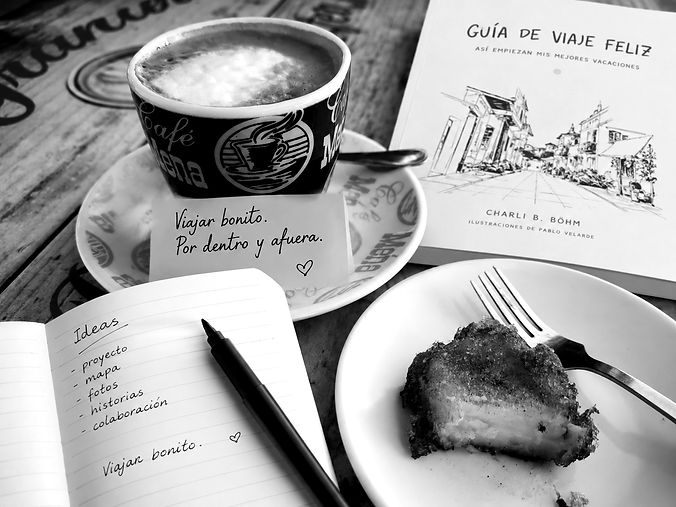 GUÍA DE VIAJE FELIZ
ASÍ EMPIEZAN MIS MEJORES VACACIONES
CHARLI B. BÖHM
ILUSTRACIONES DE PABLO VELARDE
Café
Mena
Viajar bonito.
Por dentro y afuera.
Ideas
- proyecto
- mapa
- fotos
- historias
- colaboración
Viajar bonito.